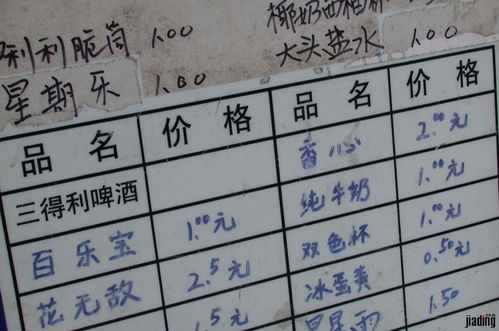 利利脆筒 1.00
椰奶西柚杯
星期乐 1.00
大头盐水 1.00
品名 价格 品名 价格
三得利啤酒 香心 2.00元
百乐宝 1.00元 纯牛奶 1.00元
花无敌 2.5元 双色杯 1.00元
1.5元 冰蛋黄 0.50元
1.50
jiading